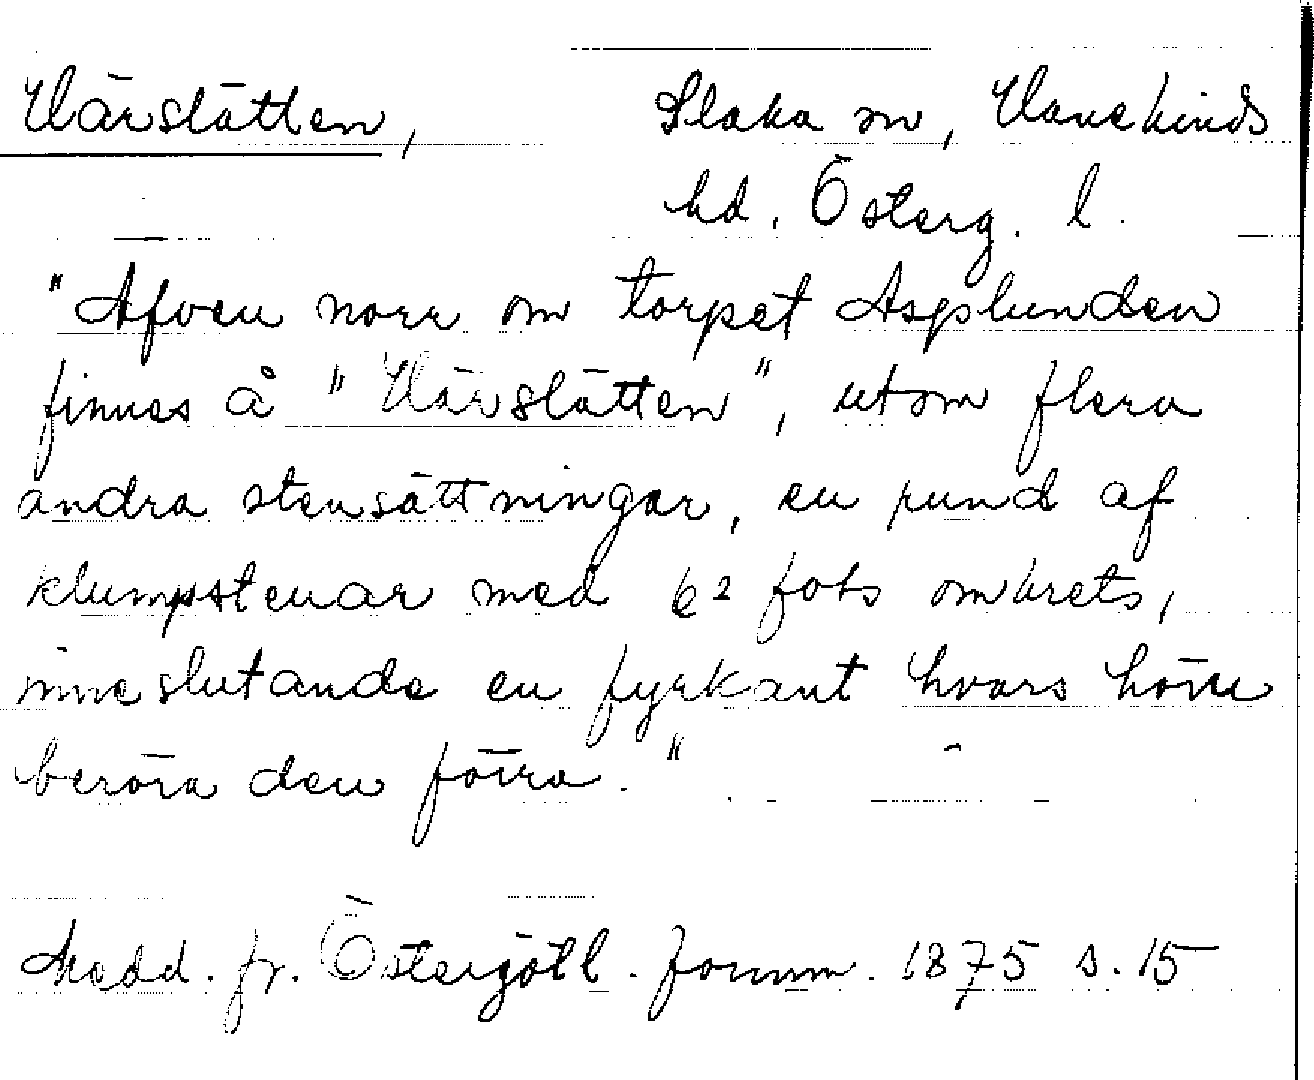 Värslätten, Slaka sn, Hanekinds
hd. Österg. l.
"Äfven norr om torpet Asplunden
finnes å "Värslätten", utom flera
andra stensättningar, en rund af
klumpstenar med 62 fots omkrets,
inneslutande en fyrkant hvars hörn
beröra den förra."
Medd. fr. Östergötl. fornm. 1875 s. 15